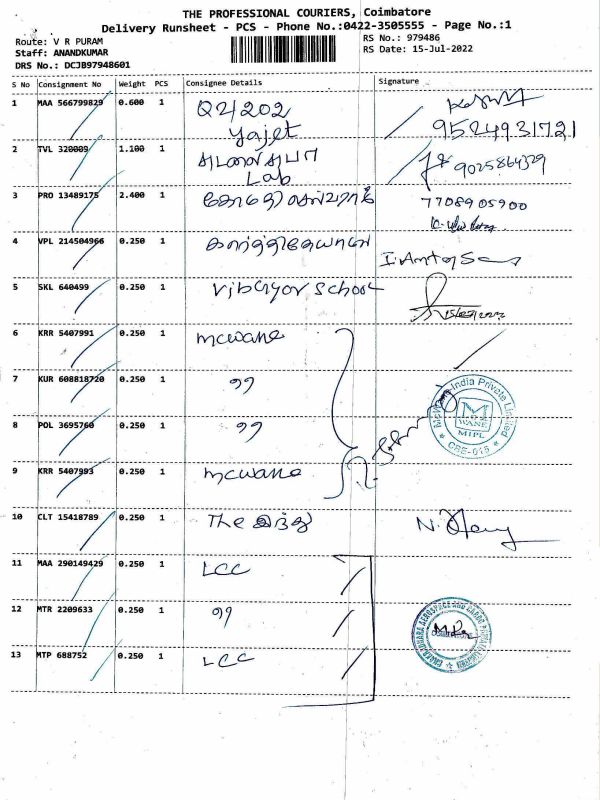 THE PROFESSIONAL COURIERS, Coimbatore
Delivery Runsheet - PCS - Phone No.:0422-3505555 - Page No.:1
Route: V R PURAM
RS No.: 979486
Staff: ANANDKUMAR
RS Date: 15-Jul-2022
DRS No.: DCJB97948601
S No Consignment No Weight PCS Consignee Details Signature
1 MAA 566799829 0.600 1 Q2/202
Yajet 9524931721
2 TVL 320009 1.100 1 9025864329
Lab
3 PRO 13489175 2.400 1 7708905900
4 VPL 214504966 0.250 1
5 SKL 640499 0.250 1 Vibgyor School
6 KRR 5407991 0.250 1 mcwane
7 KUR 608818720 0.250 1 "
8 POL 3695760 0.250 1 "
McWane India Private Limited
WANE
MIPL
CBE-015
9 KRR 5407993 0.250 1 mcwane
10 CLT 15418789 0.250 1 The இந்து
11 MAA 290149429 0.250 1 LCC
12 MTR 2209633 0.250 1 "
13 MTP 688752 0.250 1 LCC